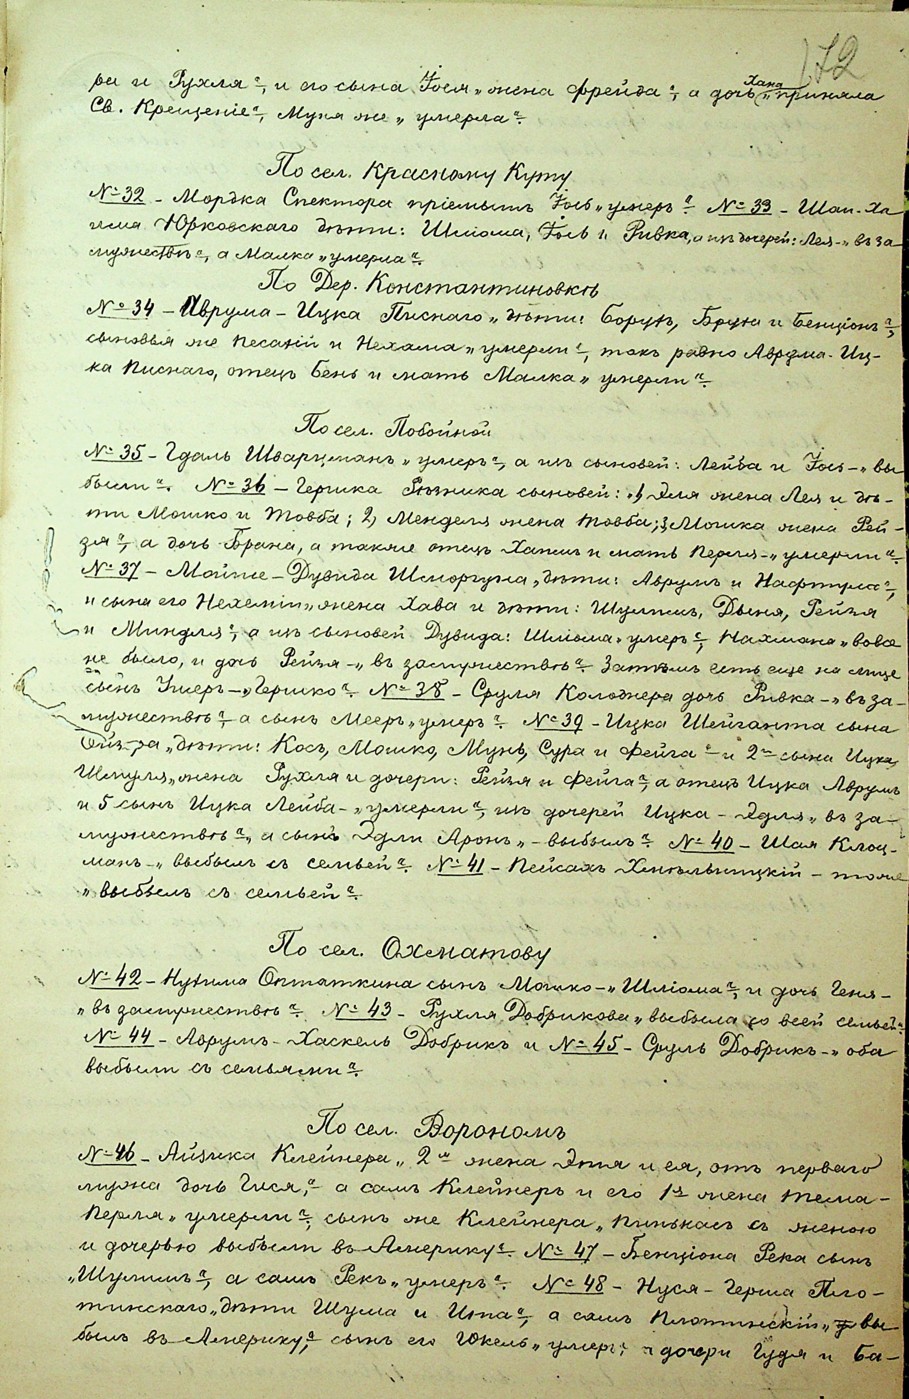 172
ра и Рухля", и его сына Іося "жена Фрейда", а дочь Хана "приняла
Св. Крещеніе", Муня же "умерла".
По сел. Красному Куту
№ 32 - Мордка Спектора пріемышъ Іось "умеръ". № 33 - Шаи-Ха-
има Юрковскаго дѣти: Шліома, Іось и Ривка, а изъ дочерей: Лея-"въ за
мужествѣ", а Малка "умерла".
По Дер. Константиновкѣ
№ 34 - Аврума-Ицка Писнаго "дѣти: Борух, Бруха и Бенціонъ",
сыновья же Песахій и Нехама "умерли", такъ равно Аврума-Иц-
ка Писнаго, отецъ Бень и мать Малка "умерли".
По сел. Побойной
№ 35 - Гдаль Шварцманъ "умеръ", а изъ сыновей: Лейба и Іось-"вы
были". № 36 - Гершка Рѣзника сыновей: 1) Эля жена Лея и дѣ-
ти Мошко и Товба; 2) Менделя жена Товба; 3) Мошка жена Рей-
зя", а дочь Брана, а также отецъ Хаимъ и мать Перля-"умерли".
№ 37 - Мойше-Дувида Шморгуна "дѣти: Аврумъ и Нафтула",
и сына его Нехеміи "жена Хава и дѣти: Шулимъ, Двыня, Рейзя
и Миндля", а изъ сыновей Дувида: Шліома "умеръ", Нахмана "вовсе
не было, и дочь Рейзя-"въ замужествѣ". Затѣмъ есть еще на лице
сынъ Умеръ-"Гершко". № 38 - Сруля Колоднера дочь Ривка-"въ за-
мужествѣ", а сынъ Мееръ "умеръ". № 39 - Ицка Шейганта сына
"дѣти: Кось, Мошко, Мунь, Сура и Фейга" и 2го сына Ицка,
Шмуля "жена Рухля и дочери: Рейзя и Фейга", а отецъ Ицка Аврумъ
и 5 сынъ Ицка Лейба-"умерли", изъ дочерей Ицка - Эдля "въ за-
мужествѣ", а сынъ Эдли Аронъ "-выбылъ". № 40 - Шая Клоц-
манъ-"выбылъ съ семьей". № 41 - Пейсахъ Хмѣльницкій - тоже
"выбылъ съ семьей".
По сел. Охматову
№ 42 - Нухима Опташкина сынъ Мошко-"Шліома", и дочь Геня-
"въ замужествѣ". № 43 - Рухля Добрикова "выбыла со всей семьей".
№ 44 - Аврумъ-Хаскель Добрикъ и № 45 - Сруль Добрикъ-"оба
выбыли съ семьями".
По сел. Вороному
№ 46 - Айзика Клейнера "2я жена Этя и ея, отъ перваго
мужа дочь Гися", а самъ Клейнеръ и его 1я жена Тема-
Перля "умерли", сынъ же Клейнера "Пинькасъ съ женою
и дочерью выбыли въ Америку". № 47 - Бенціона Река сынъ
"Шулимъ", а самъ Рекъ "умеръ". № 48 - Нуся-Герша Пло-
тинскаго "дѣти Шума и Ита", а самъ Плотинскій "вы-
былъ въ Америку", сынъ его Юкель "умеръ", а дочери Гудя и Ба-